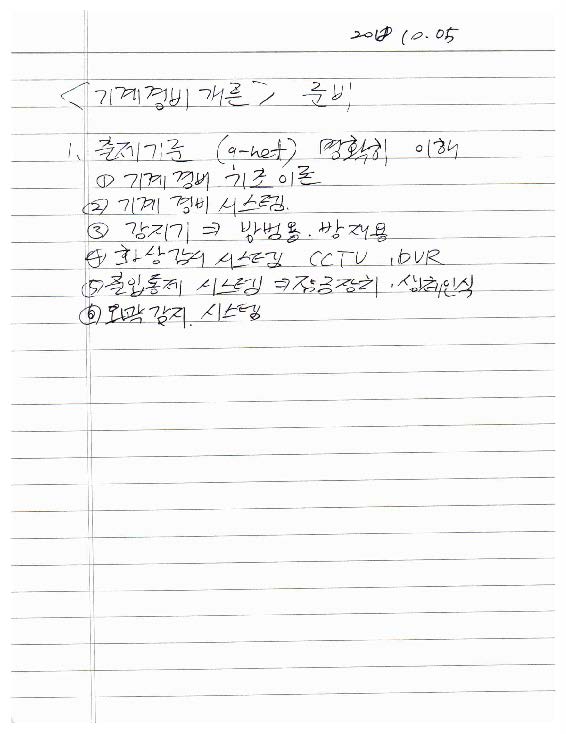 2018 10.05
<기계경비개론> 준비
1. 출제기준 (q-net) 명확히 이해
① 기계경비 기초이론
② 기계경비 시스템.
③ 감지기 ⇒ 방범용. 방재용
④ 화상감시 시스템 CCTV, DVR
⑤ 출입통제 시스템 ⇒ 잠금장치, 생체인식
⑥ 외곽감지. 시스템